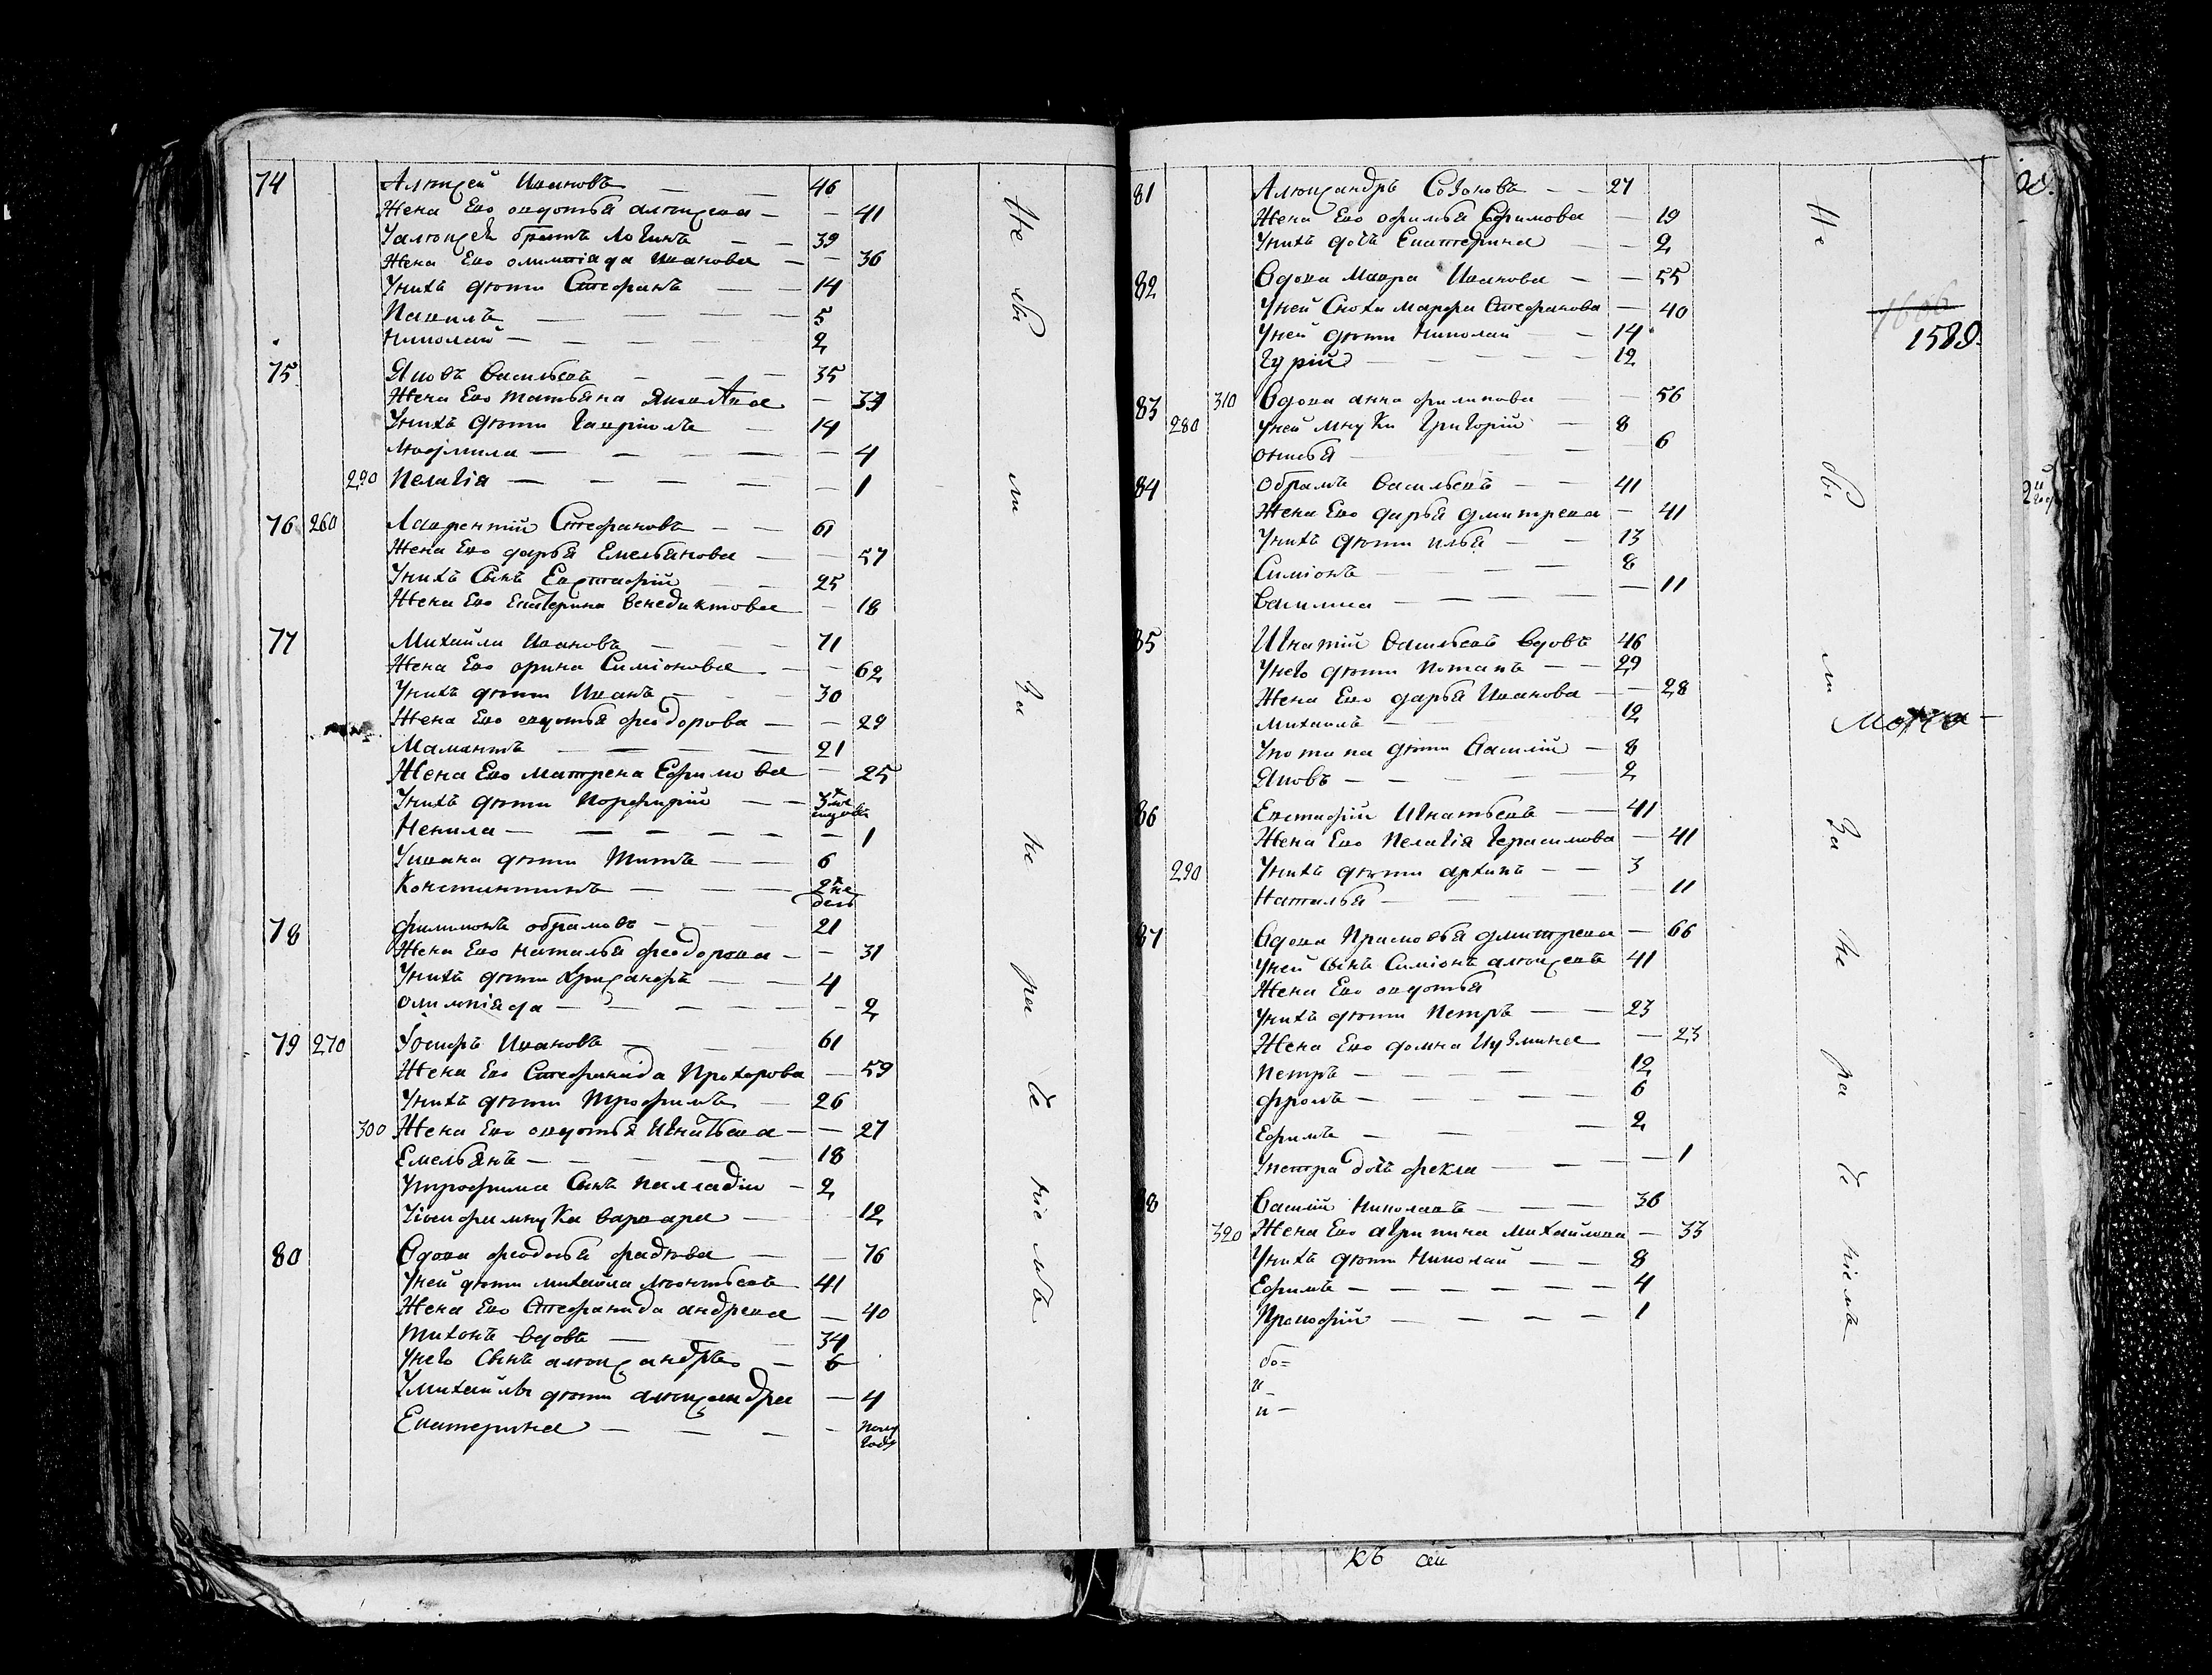 74 Алюксей Ивановъ — — 46
Жена Ево овдотья алюксева — — 41
У алюксея братъ Логинъ — — 39
Жена Ево олимпіяда Иванова — — 36
У нихъ дюти Стефанъ — — 14
Павилъ — — — — 5
Николай — — — — 2
75 Яковъ Васильевъ — — — 35
Жена Ево татьяна — 39
У нихъ дюти Гавріилъ — 14
Людмила — — — — — 4
290 Пелагія — — — — — 1
76 260 Лаврентій Стефановъ — — 61
Жена Ево дарья Емельянова — — 57
У нихъ Сынъ Евстафій — — 25
Жена Ево Екатерина Венедиктова — 18
77 Михайла Ивановъ — — 71
Жена Ево орина Симіонова — — 62
У нихъ дюти Иванъ — — 30
Жена Ево овдотья феодорова — — 29
Мамантъ — — — — 21
Жена Ево матрена Ефимова — 25
У нихъ дюти Порфирій — — 3х
Ненила — — — — — — 1
У ивана дюти Титъ — — 6
Константинъ — — — 2х недель
78 филимонъ обрамовъ — — — 21
Жена Ево наталья феодорова — — 31
У нихъ дюти Хрисанфъ — — 4
олимпіяда — — — — — 2
79 270 Іосифъ Ивановъ — — 61
Жена Ево Стефанида Прохорова — 59
У нихъ дюти трофимъ — 26
300 Жена Ево овдотья Игнатьева — — 27
Емельянъ — — — — — 18
У трофима Сынъ палладіи — 2
У іосифа мнука варвара — 12
80 Вдова феодосья фадюева — — 76
У ней дюти михайла люонтьевъ 41
Жена Ево Стефанида андрева — 40
Тихонъ вдовъ — — — 34
У него Сынъ алюксандръ — 6
У михайлы дюти алюксандра — 4
Екатерина — — — — полугоду
Не бы ли За не ра де ніе мъ
81 Алюксандръ Созоновъ — — 27
Жена Ево офимья Ефимова — 19
У нихъ дочь Екатерина — — 2
82 Вдова Мавра Иванова — — 55
У ней Сноха марфа Стефанова — 40
У ней дюти Николай — 14
Гурій — — — — — 12
83 310 Вдова анна филипова — 56
280 У ней мнуки Григорій — 8
онисья — — — 6
84 обрамъ Васильевъ — — 41
Жена Ево дарья дмитрева — 41
У нихъ дюти илья — — 13
Симіонъ — — — — 8
Василиса — — — — — 11
85 Игнатій Васильевъ Вдовъ 46
У него дюти Потапъ — — 29
Жена Ево дарья Иванова — — 28
Михаилъ — — — 12
У потапа дюти Василій — 8
Яковъ — — — — — 2
86 Евстафій Игнатьевъ — — 41
Жена Ево Пелагія Герасимова — 41
290 У нихъ дюти архипъ — — 3
Наталья — — — — 11
87 Вдова Прасковья дмитрева — 66
У ней Сынъ Симіонъ алюксевъ 41
Жена Ево овдотья
У нихъ дюти Петръ — — 23
Жена Ево домна Кузмина — 23
Петръ — — — — 12
фролъ — — — — — 6
Ефимъ — — — 2
У петра дочь фекла — — — — 1
88 Василій Николаевъ — — — 36
320 Жена Ево агрипина михайлова — 33
У нихъ дюти Николай — — 8
Ефимъ — — — — — — 4
Прокофій — — — — 1
Не бы ли За не ра де ніемъ
1606
1589.
къ ай